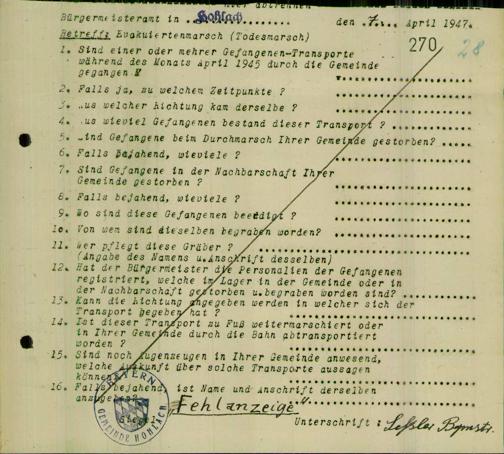 hier abtrennen
Bürgermeisteramt in Hohlach den 7. April 1947.
Betreff: Evakuiertenmarsch (Todesmarsch)
270 28
1. Sind einer oder mehrer Gefangenen-Transporte
während des Monats April 1945 durch die Gemeinde
gegangen
2. Falls ja, zu welchem Zeitpunkte ?
3. Aus welcher Richtung kam derselbe ?
4. Aus wieviel Gefangenen bestand dieser Transport ?
5. Sind Gefangene beim Durchmarsch Ihrer Gemeinde gestorben?
6. Falls Bejahend, wieviele ?
7. Sind Gefangene in der Nachbarschaft Ihrer
Gemeinde gestorben ?
8. Falls bejahend, wieviele ?
9. Wo sind diese Gefangenen beerdigt ?
10. Von wem sind dieselben begraben worden?
11. Wer pflegt diese Gräber ?
(Angabe des Namens u.Anschrift desselben)
12. Hat der Bürgermeister die Personalien der Gefangenen
registriert, welche im Lager in der Gemeinde oder in
der Nachbarschaft gestorben u.begraben worden sind?
13. Kann die Richtung angegeben werden in welcher sich der
Transport begeben hat ?
14. Ist dieser Transport zu Fuß weitermarschiert oder
in Ihrer Gemeinde durch die Bahn abtransportiert
worden ?
15. Sind noch Augenzeugen in Ihrer Gemeinde anwesend,
welche Auskunft über solche Transporte aussagen
können
16. Falls bejahend, ist Name und Anschrift derselben
anzugeben?
"Fehlanzeige"
BAYERN
GEMEINDE HOHLACH
Unterschrift :